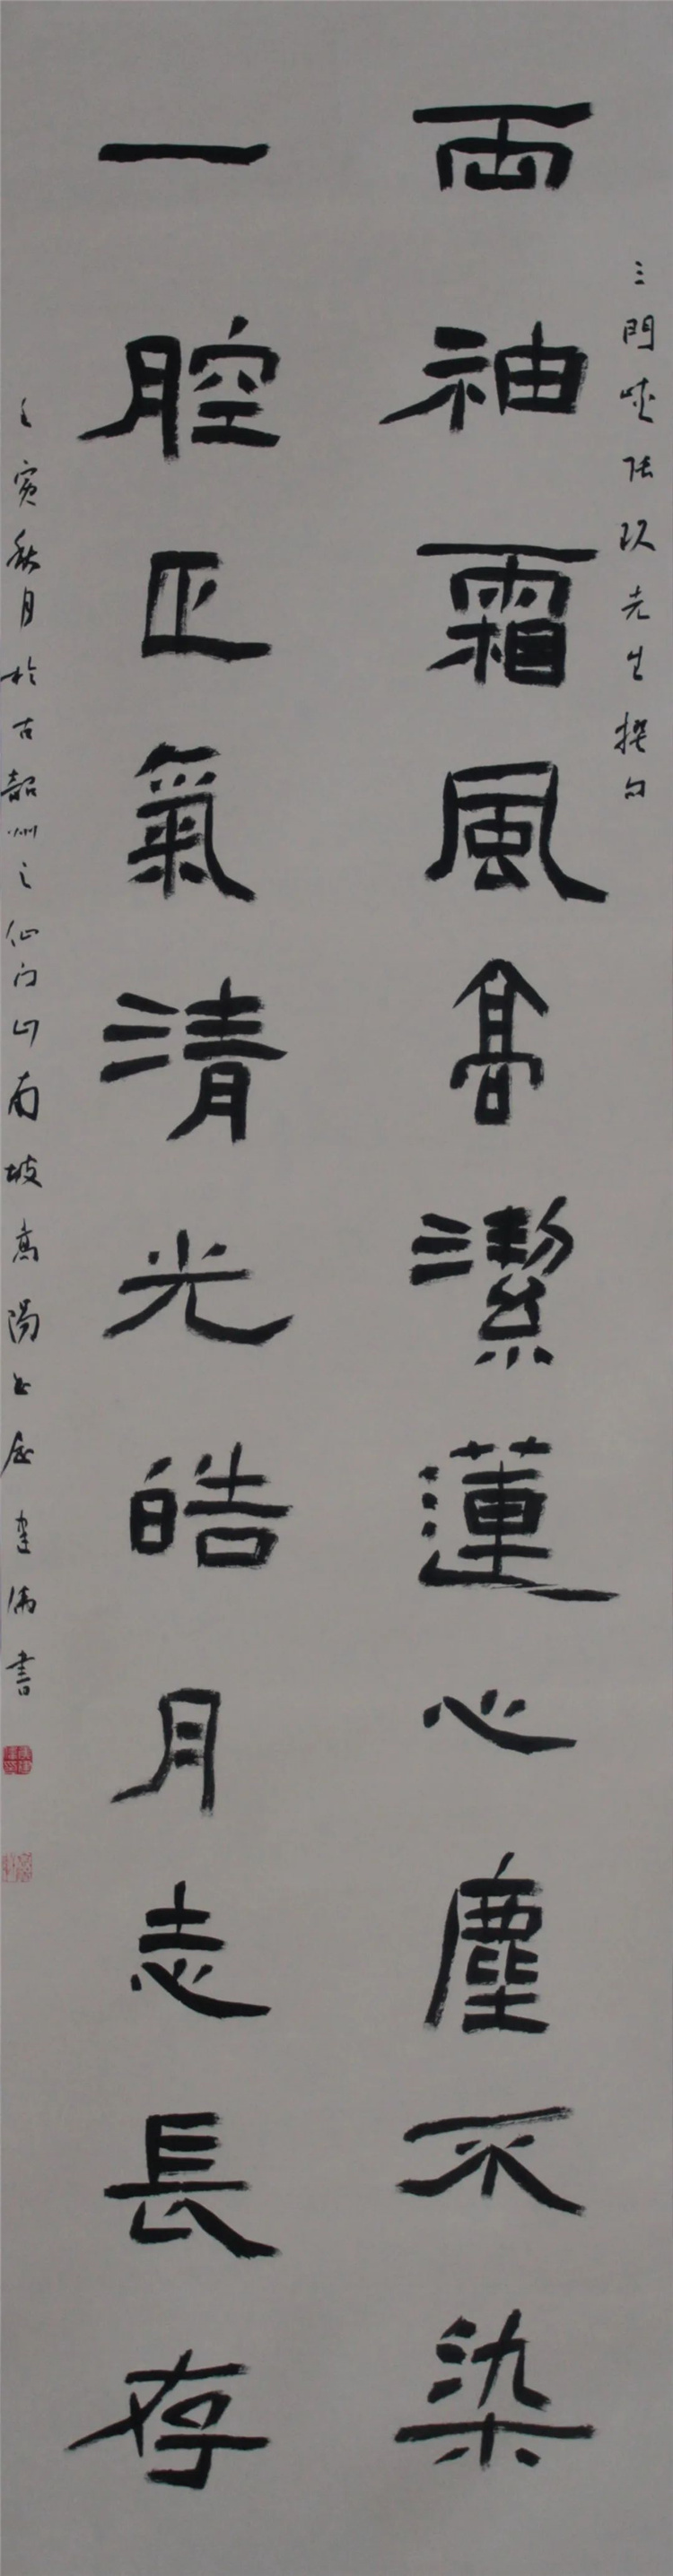 三門峽張玖先生撰句
兩袖霜風高潔蓮心塵不染
一腔正氣清光皓月志長存
寅秋月於古韶州之仙门山南坡高陽 建 書